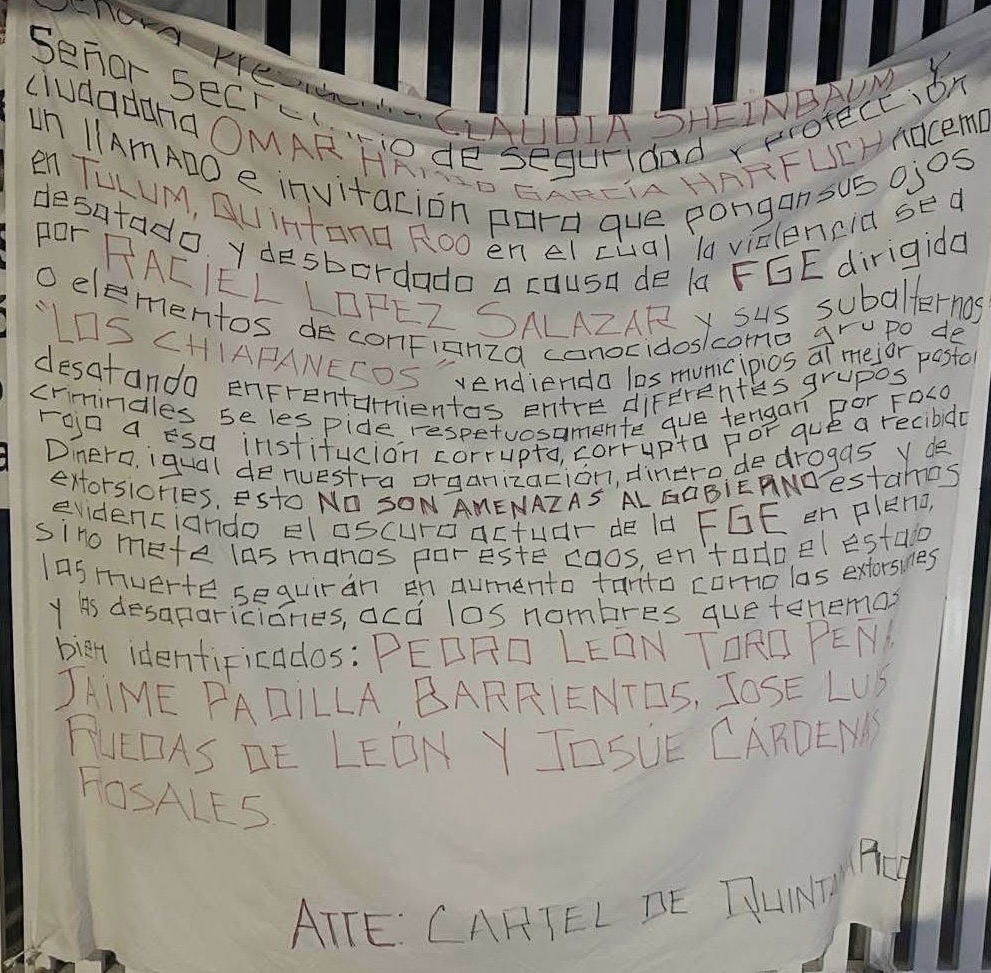 Señora Presidenta CLAUDIA SHEINBAUM y
Señor Secretario de seguridad y Protección
ciudadana OMAR HAMID GARCÍA HARFUCH hacemo
un llAMADO e invitación para que pongan sus ojos
en TULUM, Quintana Roo en el cual la violencia se a
desatado y desbordado a causa de la FGE dirigida
por RACIEL LOPEZ SALAZAR y sus subalternos
o elementos de confianza conocidos como grupo de
"LOS CHIAPANECOS" vendiendo los municipios al mejor postol
desatando enfrentamientos entre diferentes grupos
criminales se les pide respetuosamente que tengan por Foco
rojo a esa institución corrupta, corrupta por que a recibido
Dinero, igual de nuestra organización, dinero de drogas y de
extorsiones, esto NO SON AMENAZAS AL GOBIERNO estamos
evidenciando el oscuro actuar de la FGE en pleno,
sino mete las manos por este caos, en todo el estado
las muerte seguirán en aumento tanto como las extorsiones
y las desapariciónes, acá los nombres que tenemos
bien identificados: PEDRO LEÓN TORO PEÑA,
JAIME PADILLA BARRIENTOS, JOSE LUIS
RUEDAS DE LEÓN Y JOSUÉ CÁRDENAS
ROSALES.
ATTE: CARTEL DE QUINTANA ROO